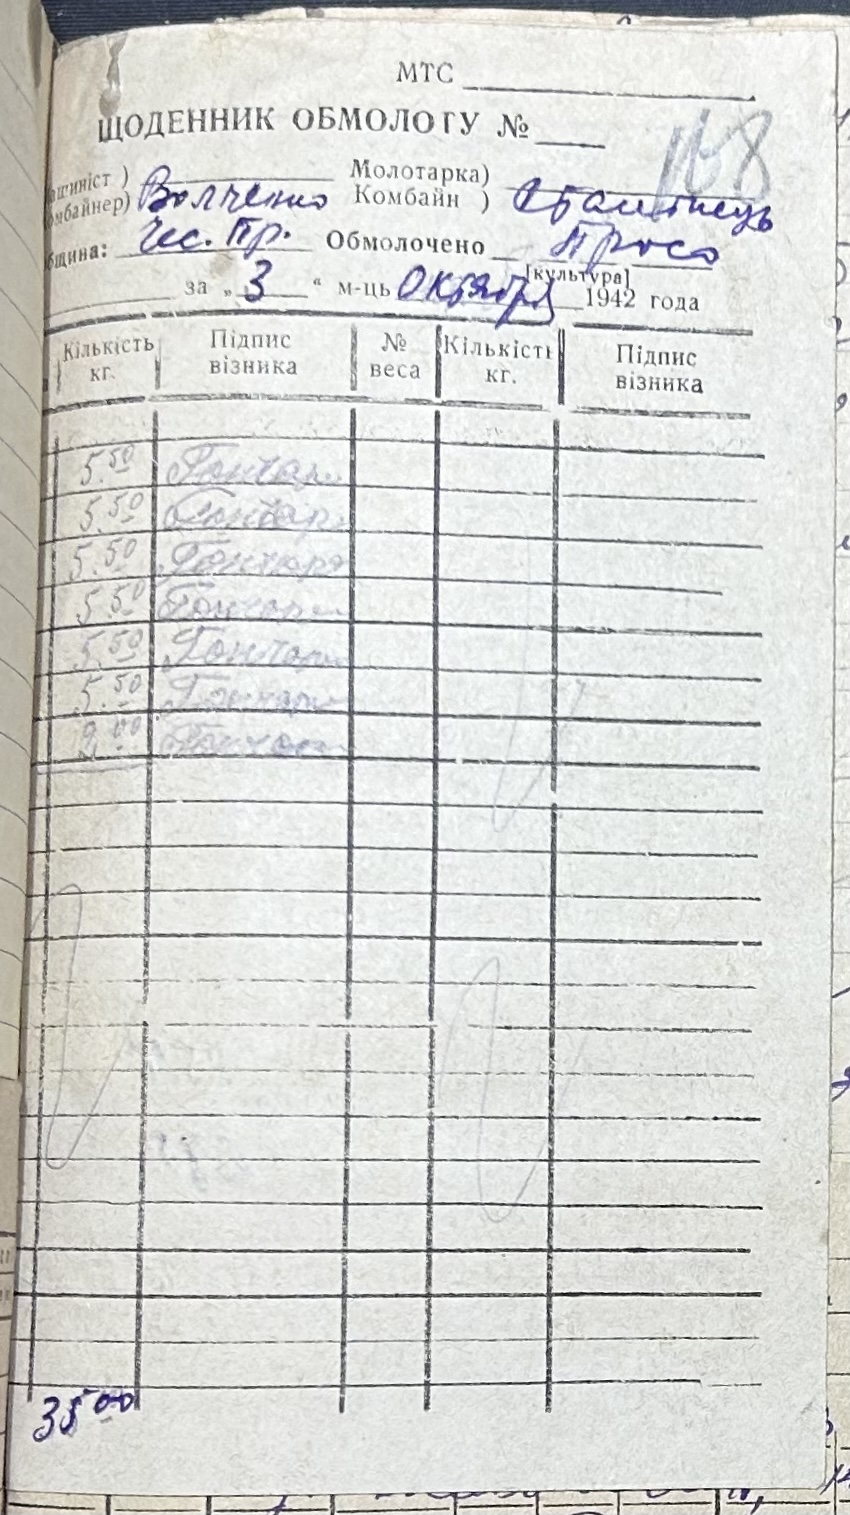 МТС
ЩОДЕННИК ОБМОЛОГУ №
168
Молотарка)
Волченко Комбайн )
Чес. Пр. Обмолочено Просо
[культура]
за „3“ м-ць Октября 1942 года
Кількість кг. Підпис візника № веса Кількість кг. Підпис візника
5.50 Гончар
5.50 Гончар
5.50 Гончар
5.50 Гончар
5.50 Гончар
5.50 Гончар
2.00 Гончар
3500